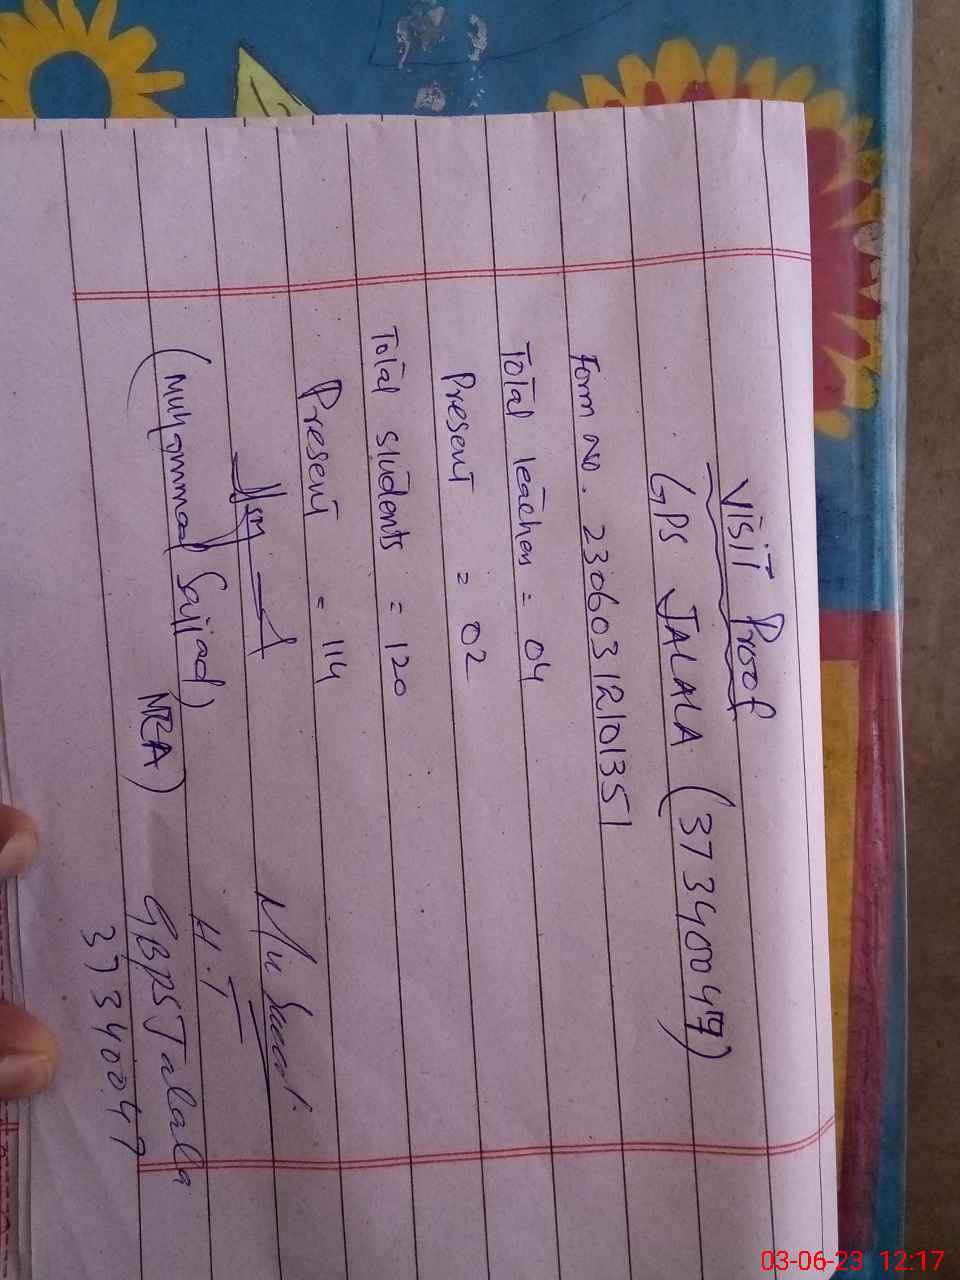 Visit Proof
GPS JALALA (37340047)
Form No. 23060312101351
Total teachers = 04
Present = 02
Total students = 120
Present = 114
(Muhammad Sajjad)
MEA)
H.T
GBPS Jalala
37340047
03-06-23 12:17